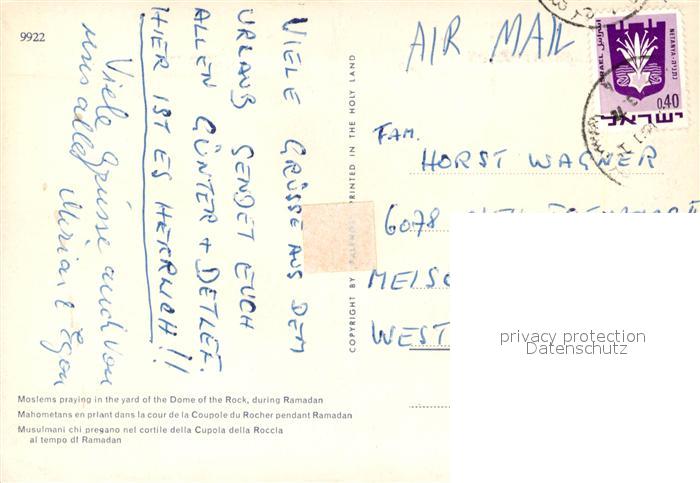 9922
VIELE GRÜSSE AUS DEM
URLAUB SENDET EUCH
ALLEN GÜNTER + DETLEF.
HIER IST ES HERRLICH!!
Viele Grüsse auch von
uns allen
AIR MAIL
FAM.
HORST WAGNER
6078
WEST
COPYRIGHT BY PALPHOT PRINTED IN THE HOLY LAND
ISRAEL
NETANYA
0.40
ישראל
privacy protection
Datenschutz
Moslems praying in the yard of the Dome of the Rock, during Ramadan
Mahometans en priant dans la cour de la Coupole du Rocher pendant Ramadan
Musulmani chi pregano nel cortile della Cupola della Roccia
al tempo di Ramadan